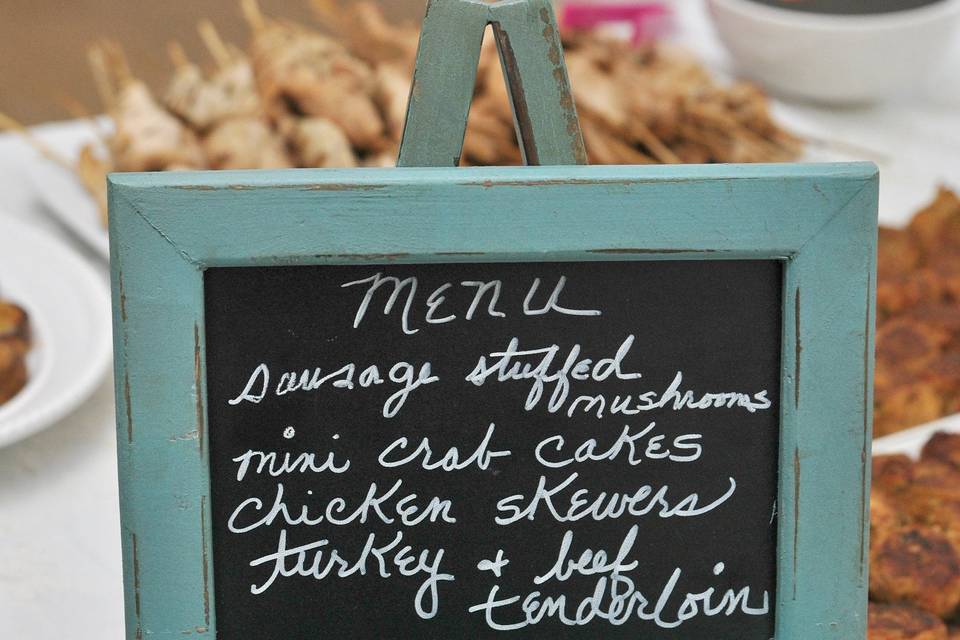 MENU
Sausage stuffed
mushrooms
mini crab cakes
chicken skewers
turkey & beef
tenderloin